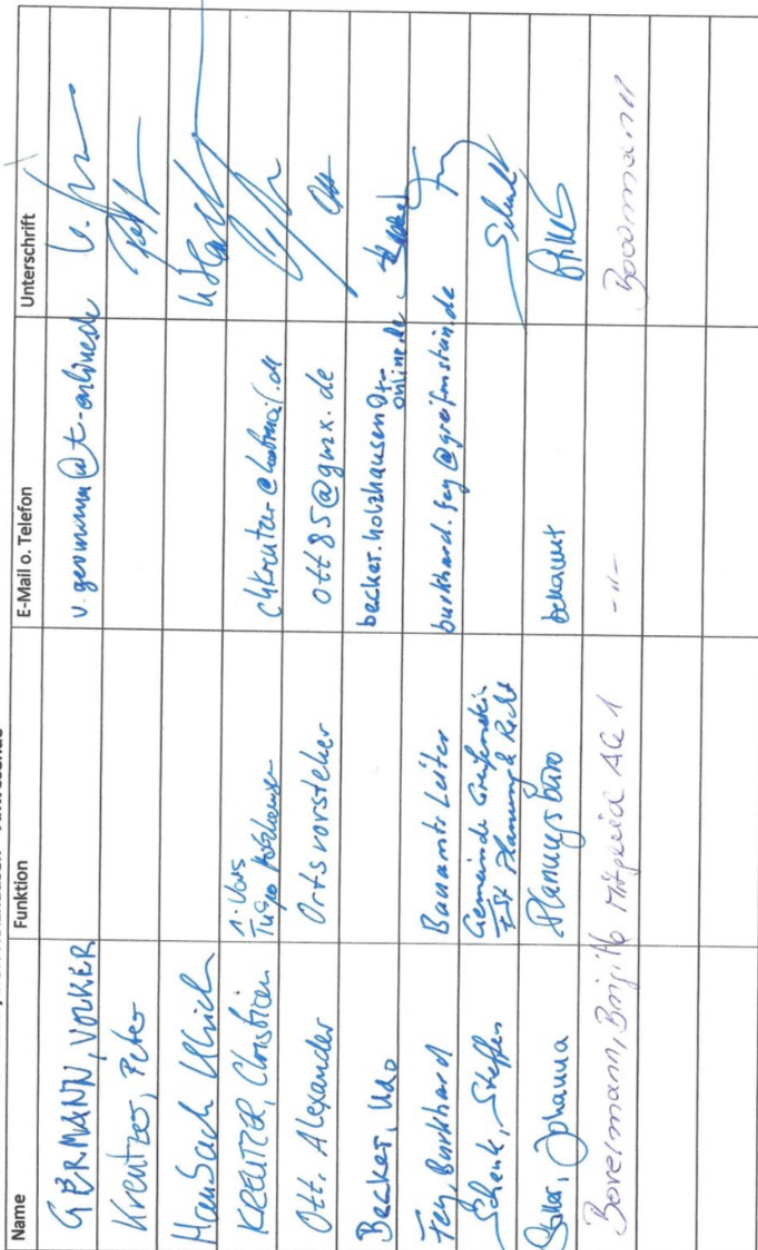 Name Funktion E-Mail o. Telefon Unterschrift
GERMANN, VOLKER v.germann@t-online.de
Kreutzer, Peter
Ulrich
KREUTZER, Christian 1. Vors
TuSpo Holzhausen chkreutzer@hotmail.de
Ott, Alexander Ortsvorsteher ott85@gmx.de Ott
Becker, Udo becker.holzhausen@t-
online.de
Fey, Burkhard Bauamts Leiter burkhard.fey@greifenstein.de
Schenk, Steffen Gemeinde Greifenstein
Planung & Recht
Johanna Planungsbüro bekannt
Birgitta Mitglied AG 1 -"-